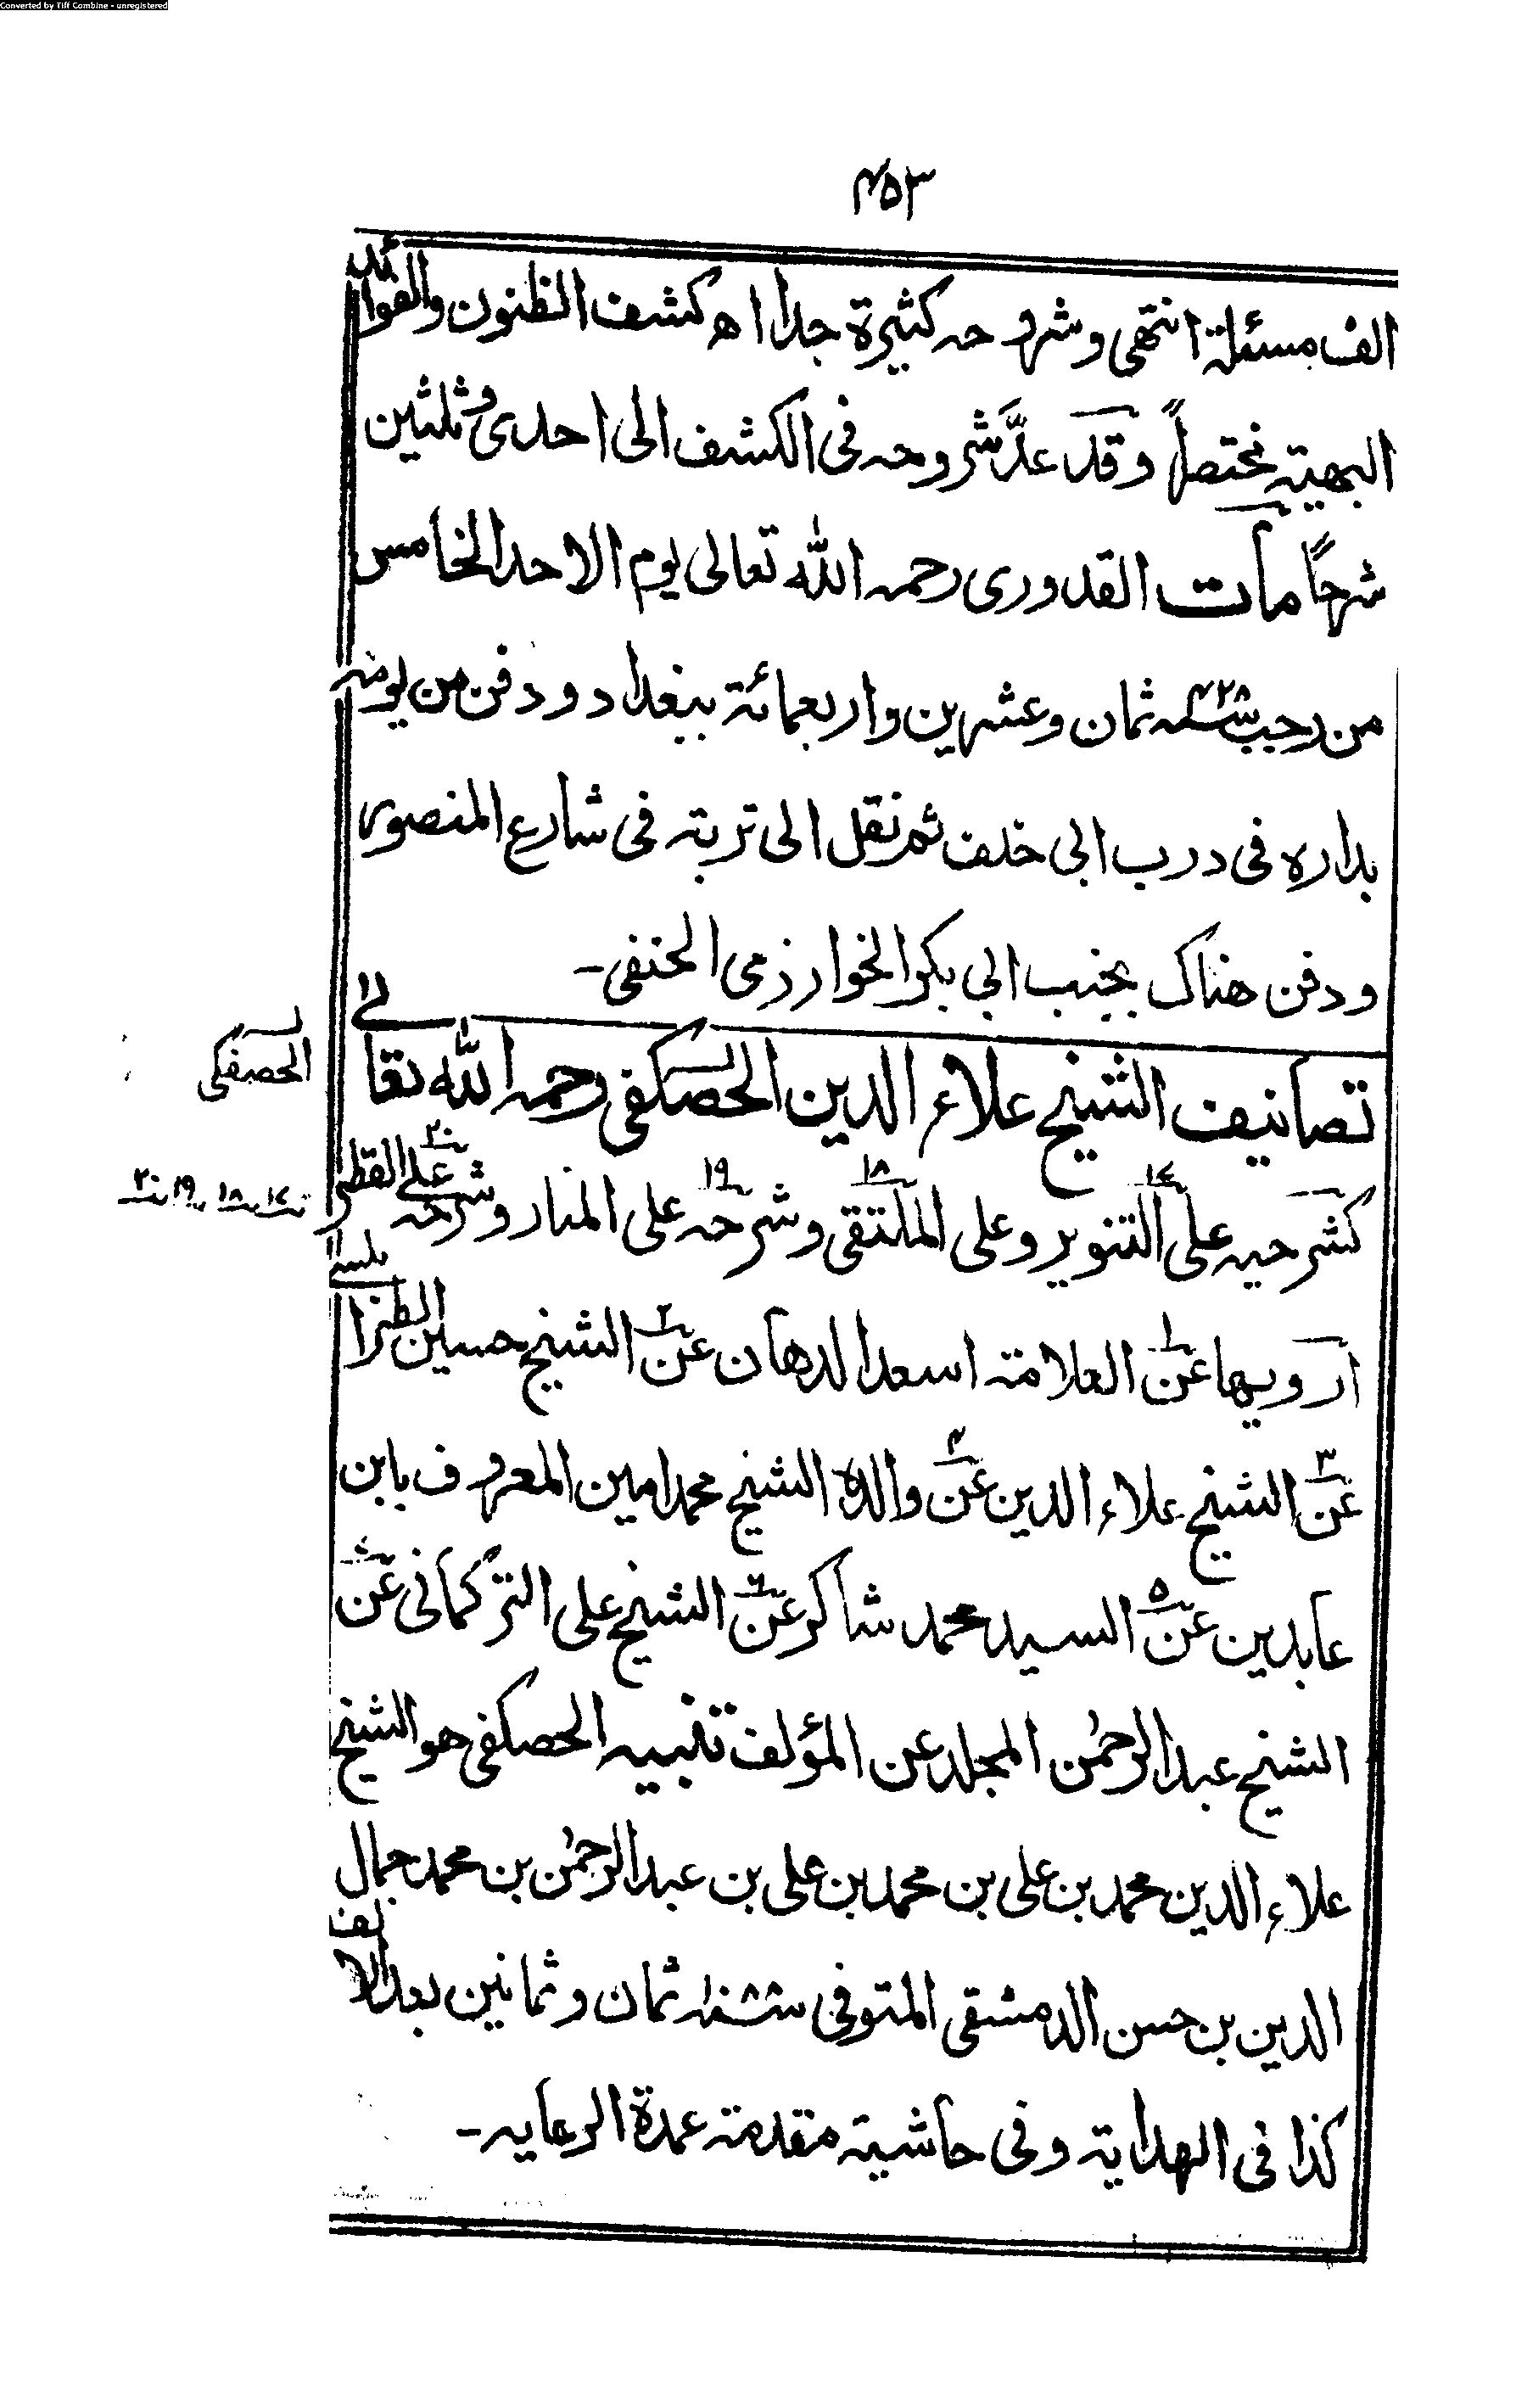 Converted by Tiff Combine - unregistered
۴۵۳
الف مسئلة انتهى وشروحه كثيرة جدا اھ كشف الظنون والفوائد
البهية مختصراً وقد عدَّ شروحه فى الكشف الى احدى وثلثين
شرحاً مات القدورى رحمه الله تعالى يوم الاحد الخامس
من رجب سنة ۴۲۸ ثمان وعشرين واربعمائة ببغداد ودفن من يومه
بداره فى درب ابى خلف ثم نقل الى تربة فى شارع المنصور
ودفن هناك بجنب ابي بكر الخوارزمى الحنفى۔
تصانيف الشيخ علاء الدين الحصكفى رحمه الله تعالى
الحصفكى
كشرحيه على التنوير وعلى الملتقى وشرحه على المنار وشرحه على القطر
۱۷ ۱۸ ۱۹ ۲۰
ارويها عن العلامة اسعد الدهان عن الشيخ حسين الطرابلسى
عن الشيخ علاء الدين عن والده الشيخ محمد امين المعروف بابن
عابدين عن السيد محمد شاكر عن الشيخ على التركمانى عن
الشيخ عبد الرحمٰن المجلد عن المؤلف تنبيه الحصكفى هو الشيخ
علاء الدين محمد بن على بن محمد بن على بن عبد الرحمٰن بن محمد جمال
الدين بن حسن الدمشقى المتوفى ثمان وثمانين بعد الالف
كذا فى الهداية وفى حاشية مقدمة عمدة الرعايه۔